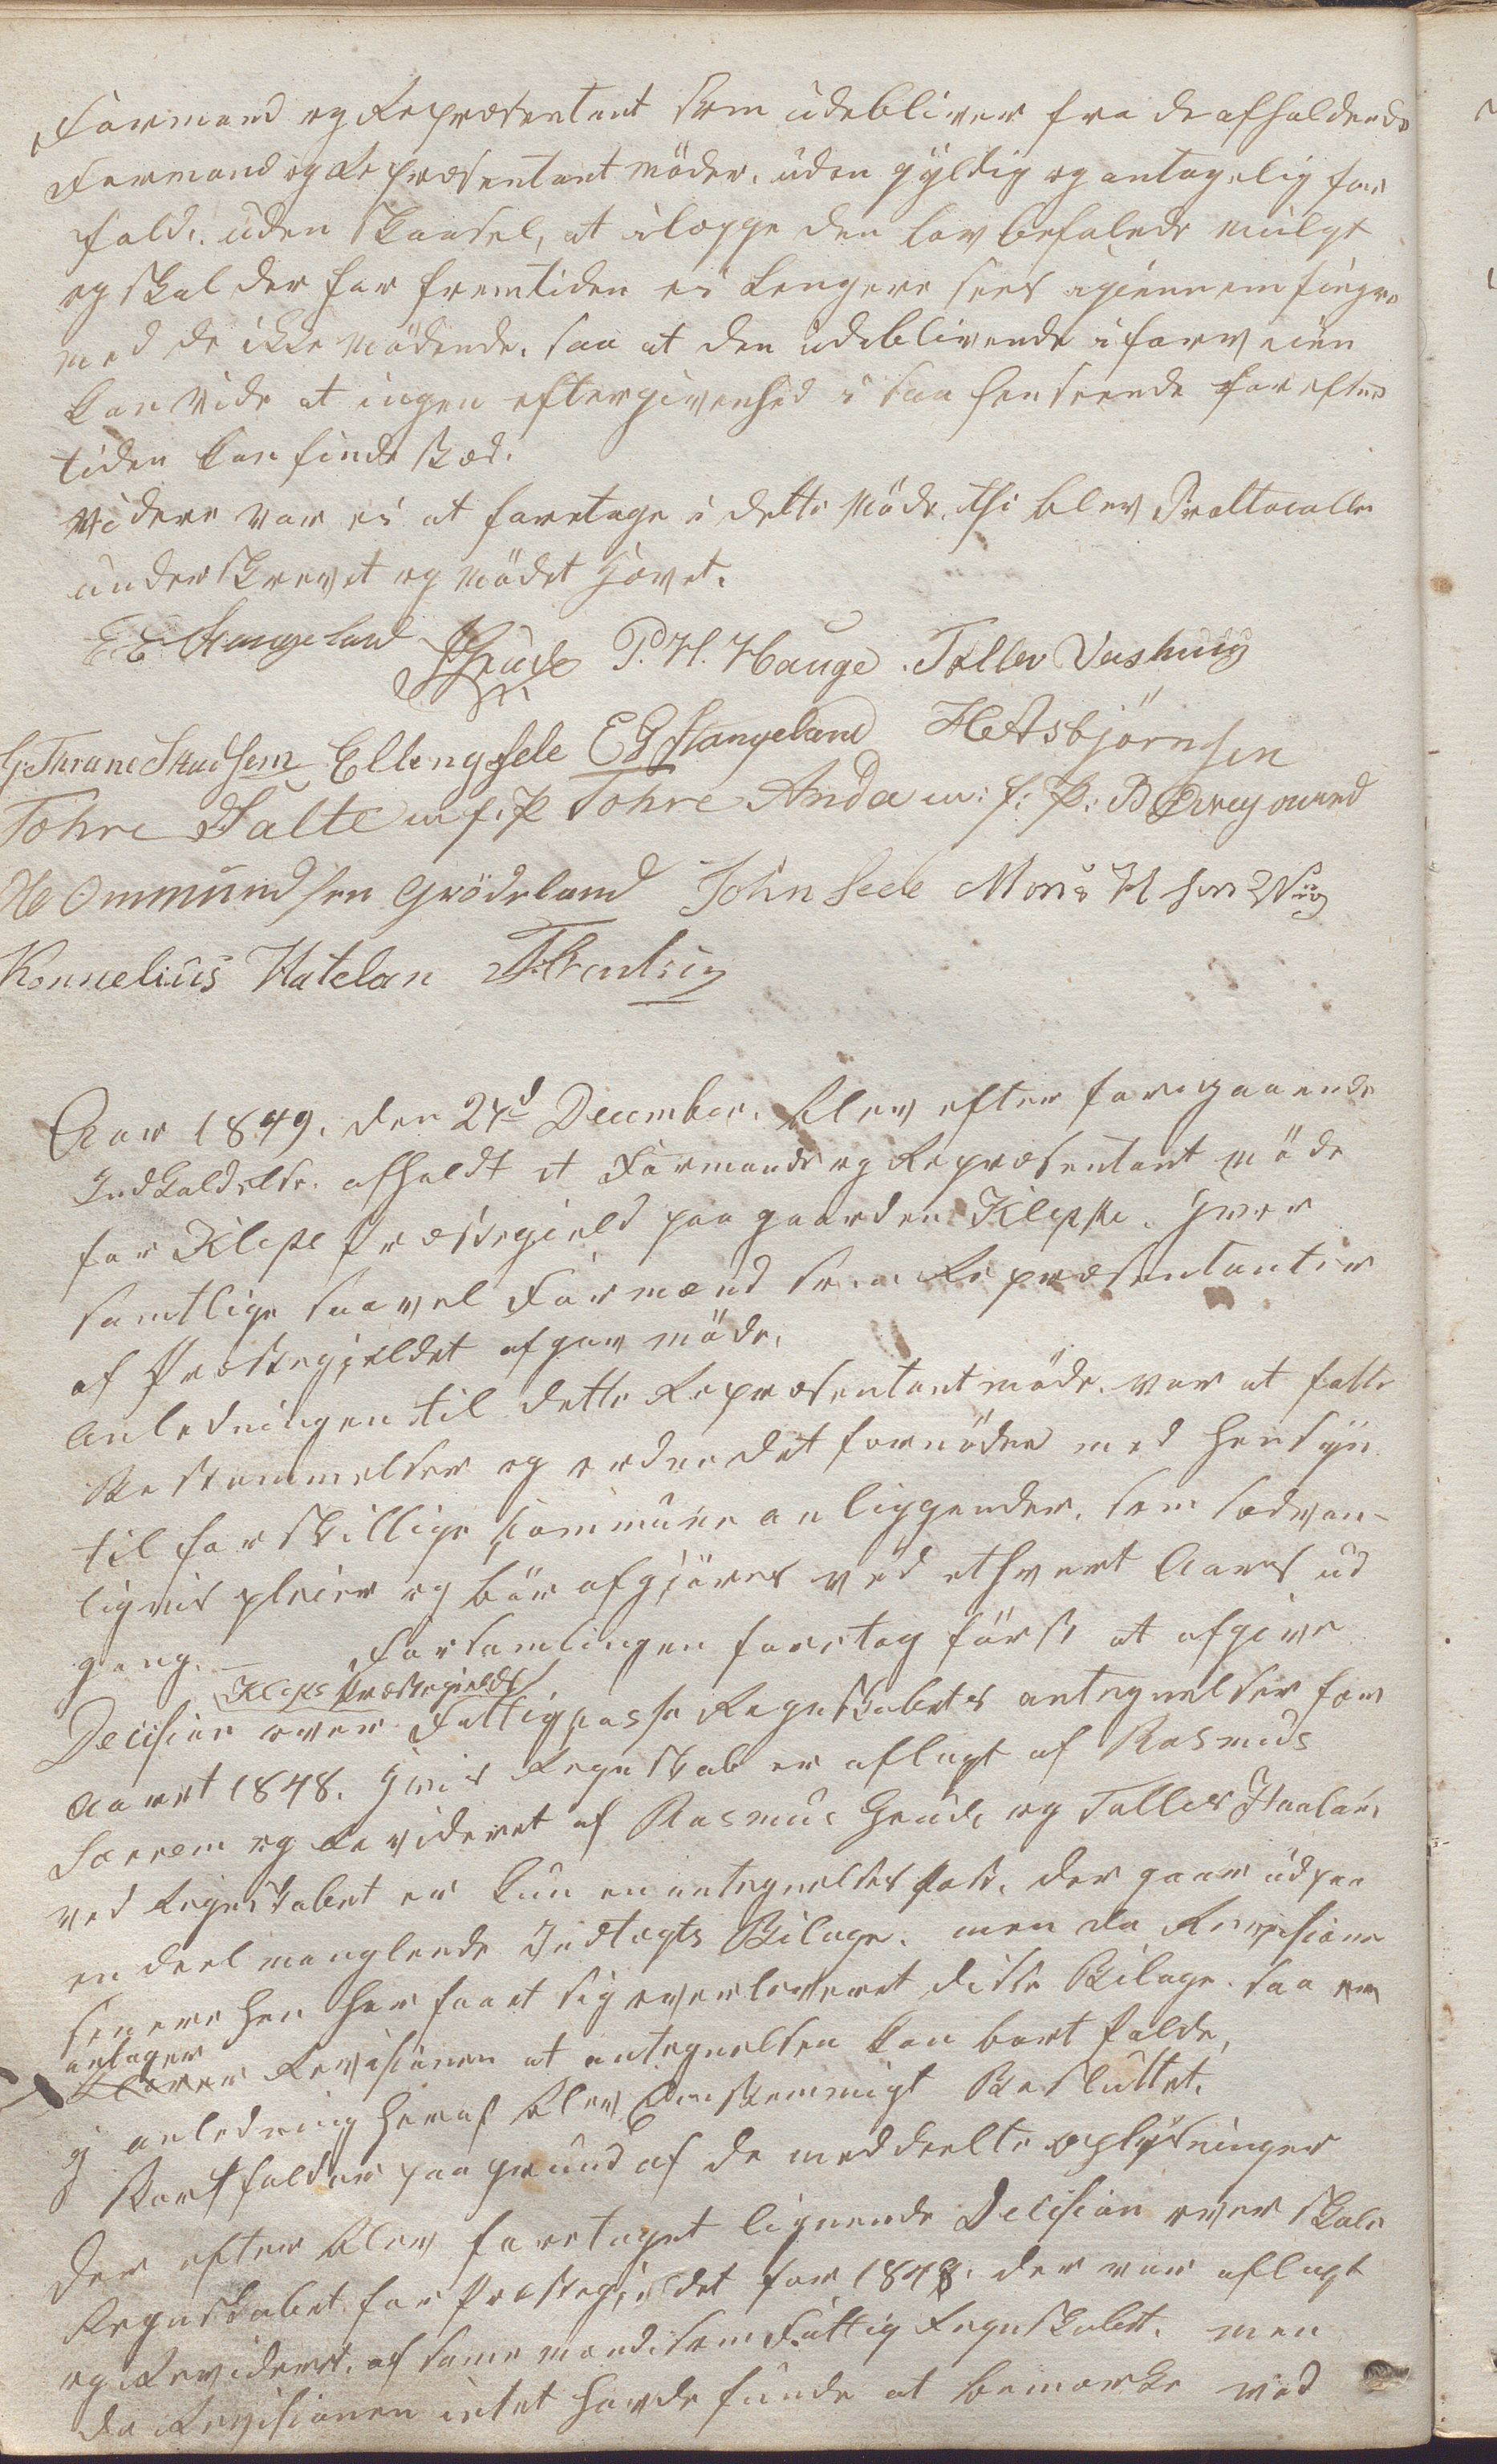 Formænd og Repræsentant som udebliver fra de afholdende
Formand og Repræsentant möder, uden gyldig og antagelig for
fald, uden Skaansel, at ilægge den lov befalede mulgt
og skal der for fremtiden ei Længere sees igiennem fingre
med de ikke mödende, saa at den udeblivende i forveien
kan vide at ingen eftergivenhed i saa henseende for efter
tiden kan finde sted.
Videre var ei at foretage i dette Möde, thi blev Protocollen
underskrevet og mödet hævet.
E E Stangeland P. H. Hauge. Toller Vashuig
G. Thrane Ellengsele E G Stangeland H Asbjörnsen
Tohre Salte m f. P Tohre Anda m: f: P: B
H Ommundsen Grödeland John Sele Mons H sen Wiig
Konnelius Hatelan
Aar 1849. den 27d December, blev efter foregaaende
Indkaldelse, afholdt et Formands og Repræsentant möde
for Klepe Præstegield paa gaarden Kleppe. hvor
samtlige saavel Formænd som Repræsentanter
af Præstegjeldet afgav möde,
Anledningen til dette Repræsentantmöde, var at fatte
Bestemmelser og ordne det fornödne med Hensyn
til forskillige Communeanliggender, som sædvan-
ligvis pleier og bör afgjöres ved ethvert Aars ud
gang. — Forsamlingen foretog först at afgive
Kleps Præstegields
Decision over Fattigcasse Regnskabets antegnelser for
Aaret 1848. hvis Regnskab er aflagt af Rasmus
Særrem og Revideret af Rasmus Grude og Talles Haaland
ved Regnskabet er kun en antegnelses Post, der gaar udpaa
en deel manglende Indtægts Bilage. men da Revisionen
senere hen har faaet sig overleveret disse Bilage. saa
antager
Revisionen at antegnelsen kan bort falde,
I anledning heraf blev Eenstemmigt Besluttet.
Bortfalder paa grund af de meddeelte oplysninger
Der efter blev foretaget lignende Decision over Skole
Regnskabet for Præstegjeldet for 1848. der var aflagt
og Revideret. af samme mænd som Fattig Regnskabet. men
da Revisionen intet havde funde at bemærke ved